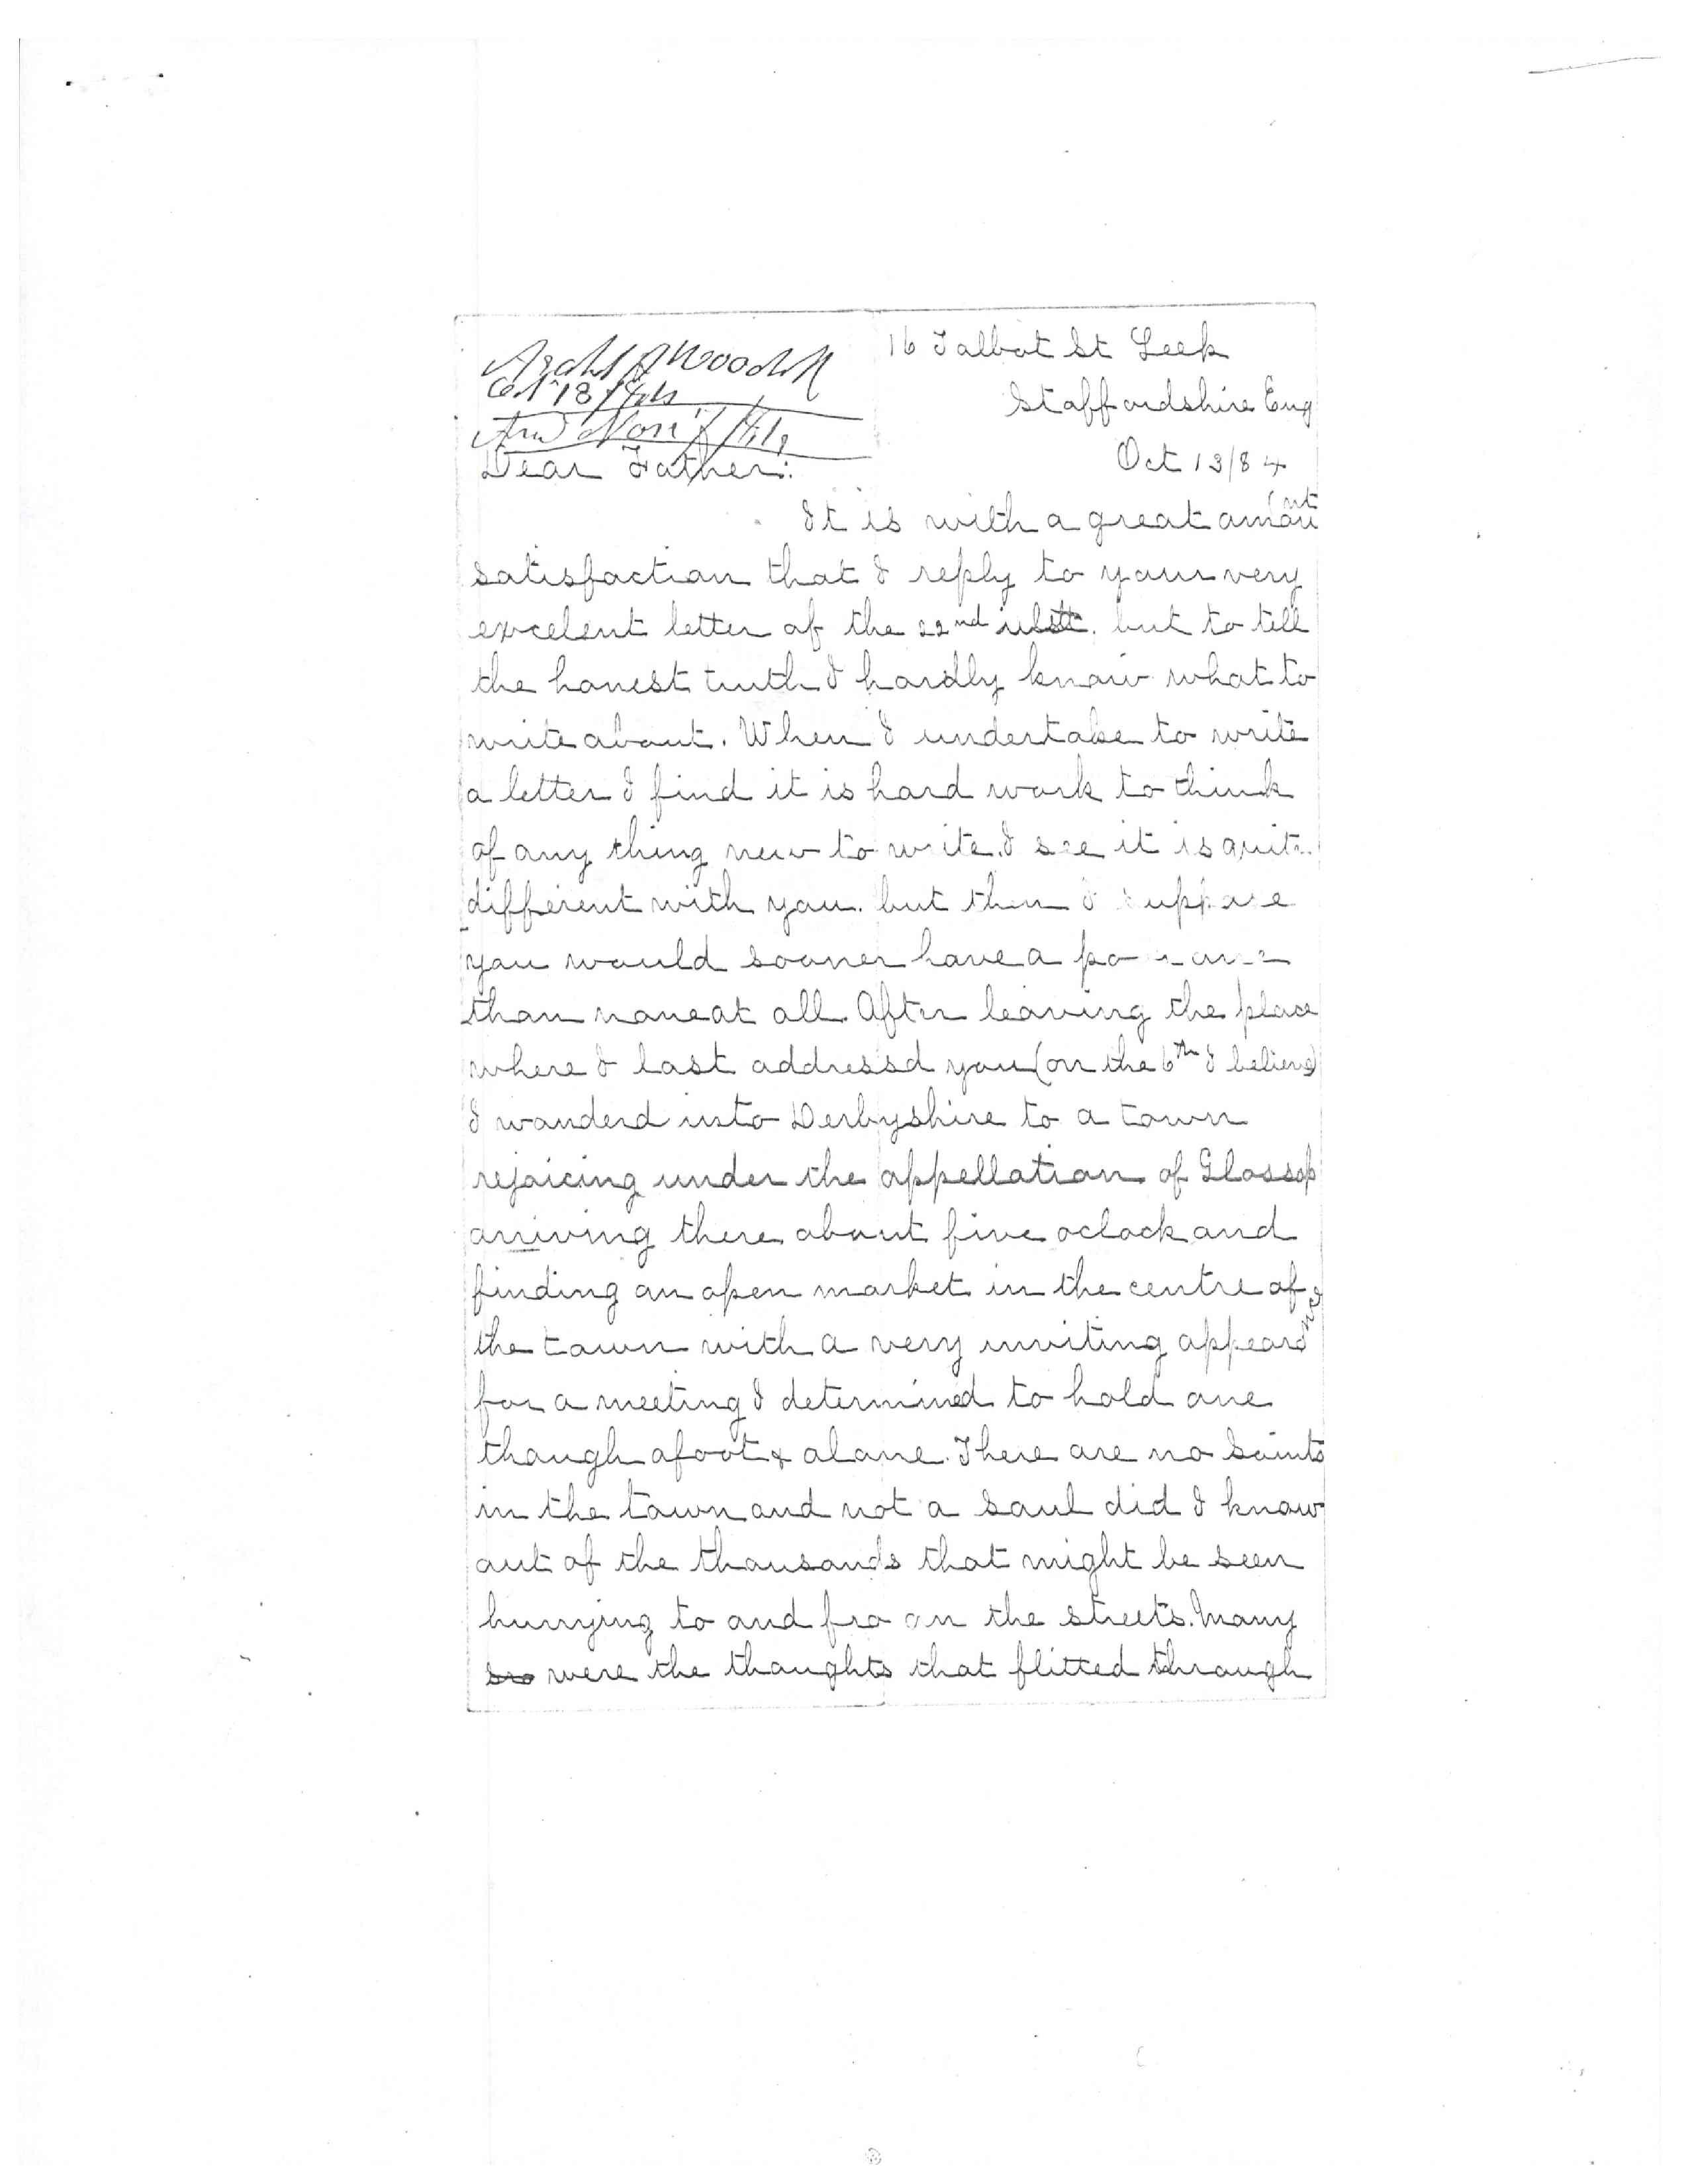 16 Talbot St Leek
Staffordshire Eng
Oct 13/84
Dear Father:
It is with a great amount
satisfaction that I reply to your very
excelent letter of the 22nd but to tell
the honest truth I hardly know what to
write about. When I undertake to write
a letter I find it is hard work to think
of any thing new to write. I see it is quite
different with you. but then I suppose
you would sooner have a poor one
than none at all. After leaving the place
where I last addressd you (on the 6th I believe)
I wanderd into Derbyshire to a town
rejoicing under the appellation of Glossop
arriving there about five oclock and
finding an open market in the centre of
the town with a very inviting appearance
for a meeting I determined to hold one
though afoot & alone. There are no Saints
in the town and not a soul did I know
out of the thousands that might be seen
hurrying to and fro on the streets. Many
were the thoughts that flitted through